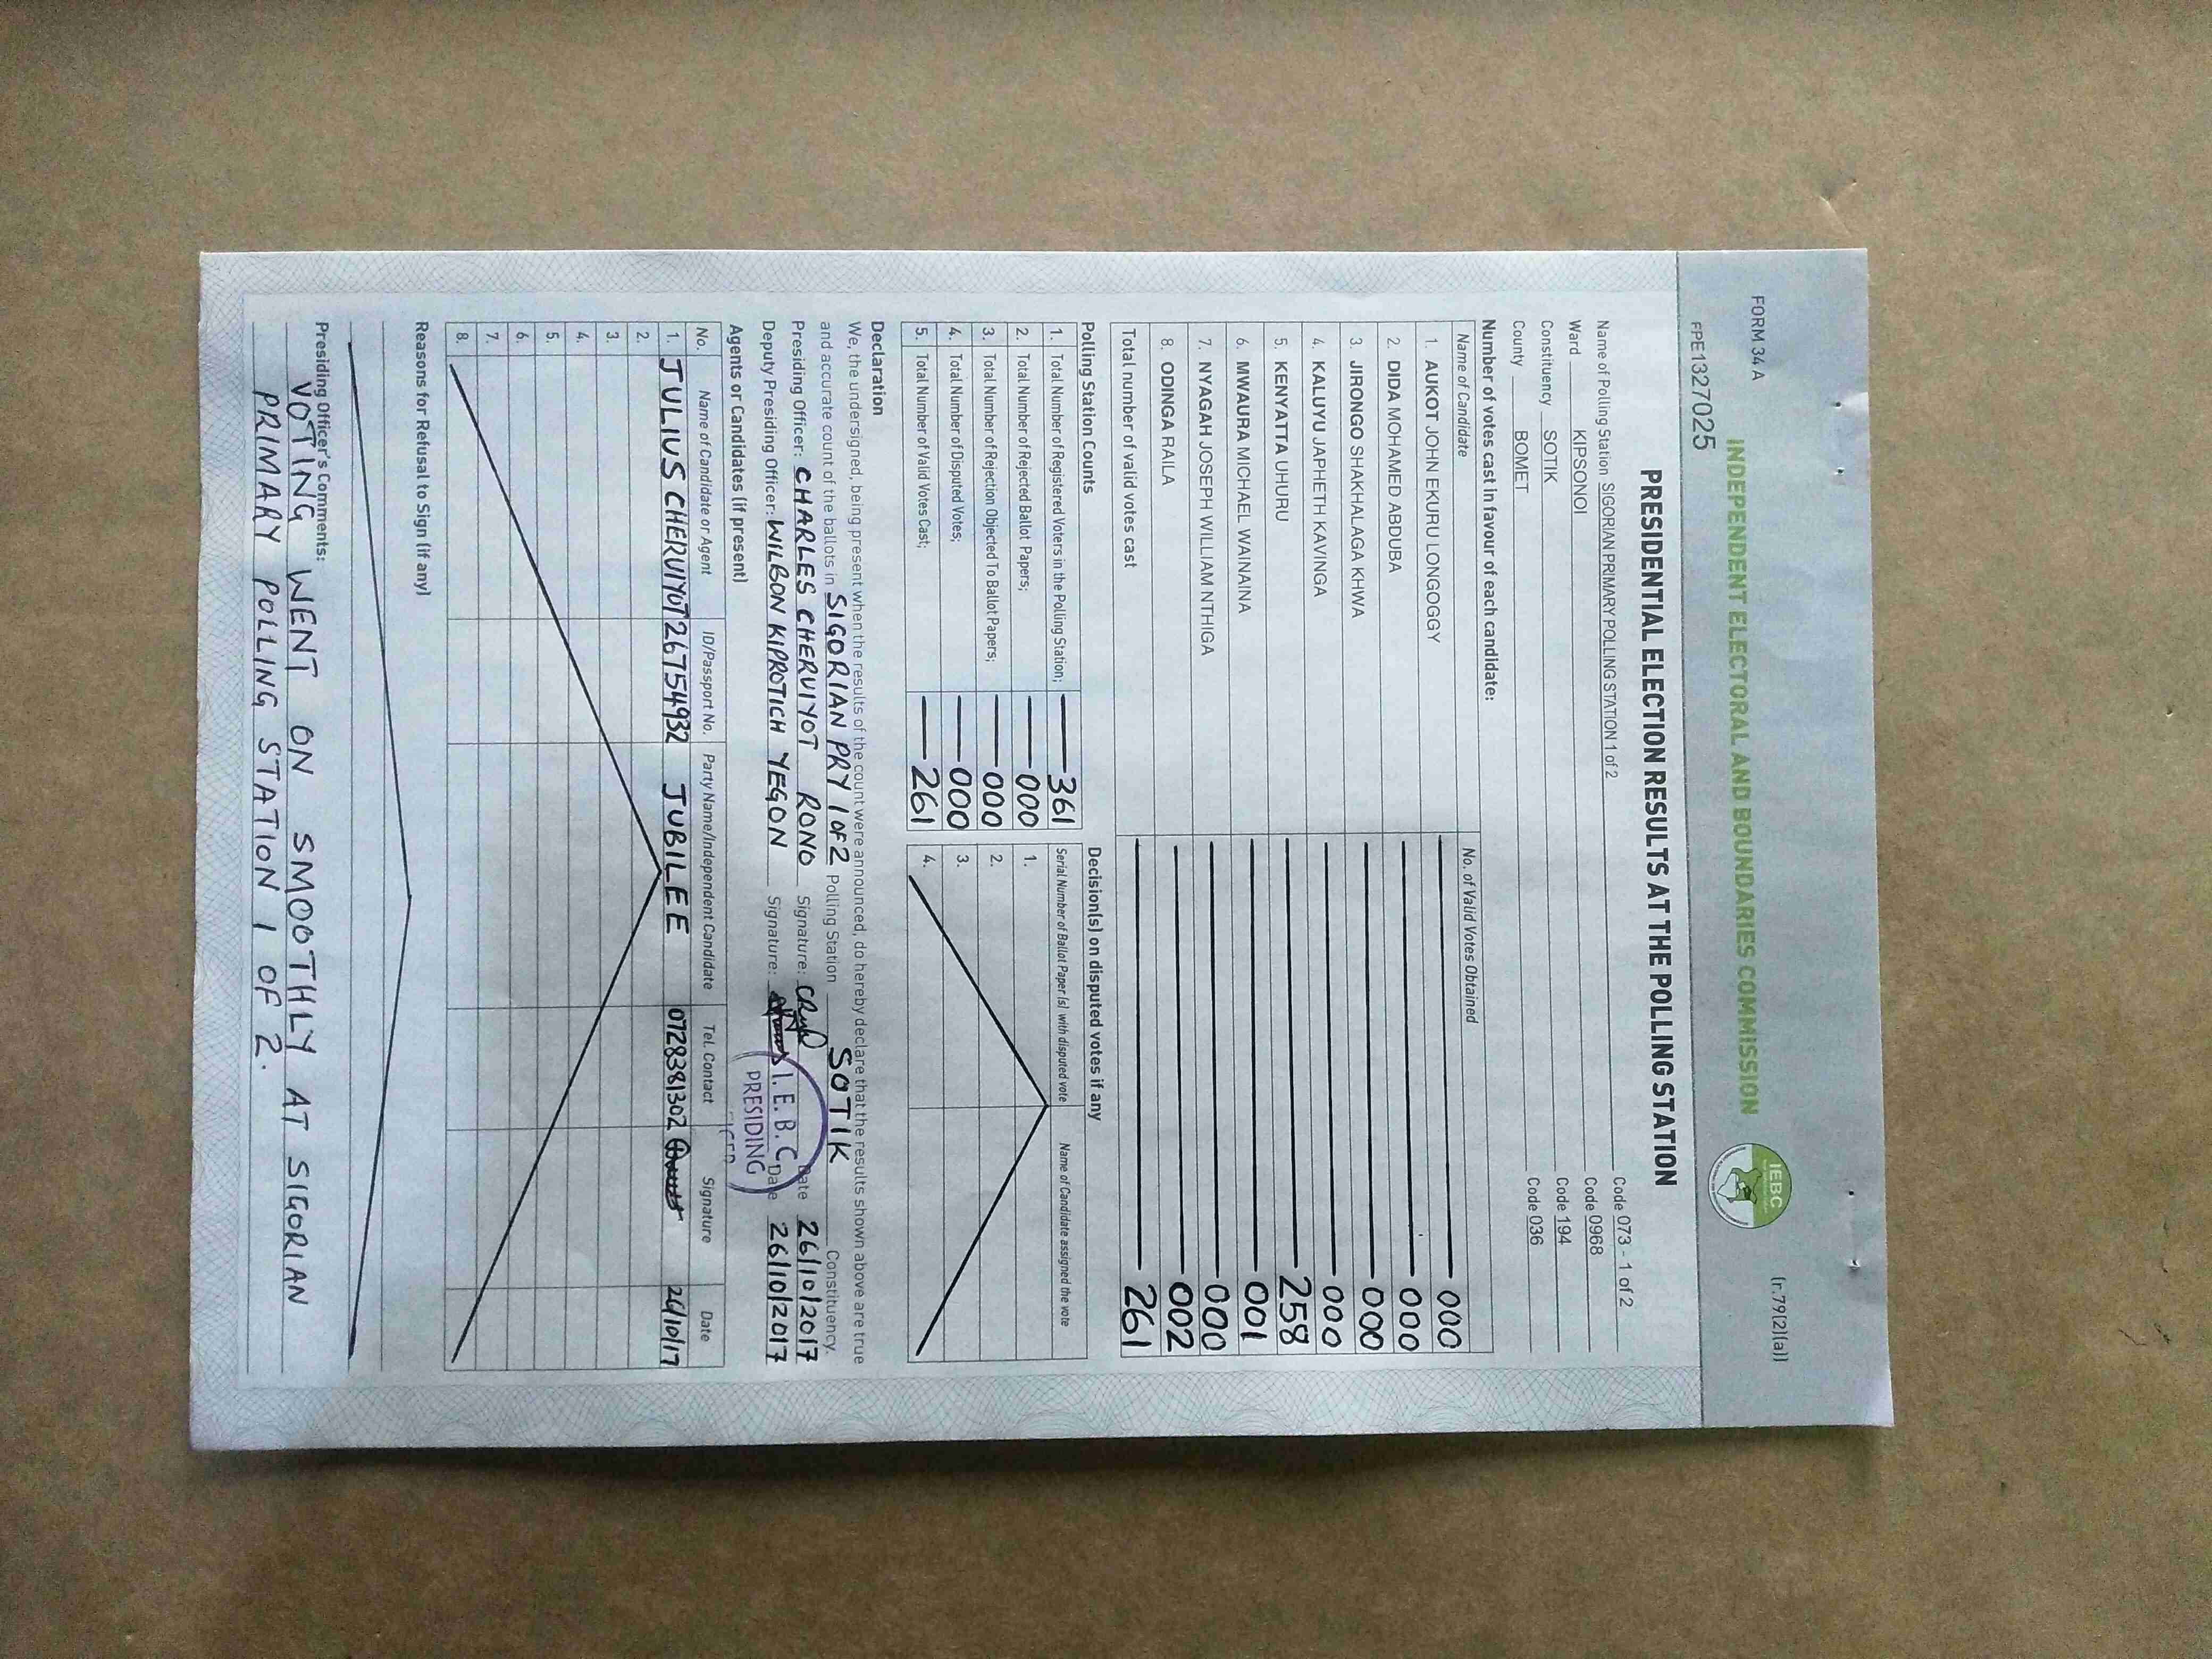 FORM 34 A
(r.79(2)(a))
INDEPENDENT ELECTORAL AND BOUNDARIES COMMISSION
IEBC
PRESIDENTIAL ELECTION RESULTS AT THE POLLING STATION
Name of Polling Station SIGORIAN PRIMARY POLLING STATION 1 of 2 Code 073 - 1 of 2
Ward KIPSONOI Code 0968
Constituency SOTIK Code 194
County BOMET Code 036
Number of votes cast in favour of each candidate:
Name of Candidate No. of Valid Votes Obtained
1. AUKOT JOHN EKURU LONGOGGY 000
2. DIDA MOHAMED ABDUBA 000
3. JIRONGO SHAKHALAGA KHWA 000
4. KALUYU JAPHETH KAVINGA 000
5. KENYATTA UHURU 258
6. MWAURA MICHAEL WAINAINA 001
7. NYAGAH JOSEPH WILLIAM NTHIGA 000
8. ODINGA RAILA 002
Total number of valid votes cast 261
Polling Station Counts
1. Total Number of Registered Voters in the Polling Station; 361
2. Total Number of Rejected Ballot Papers; 000
3. Total Number of Rejection Objected To Ballot Papers; 000
4. Total Number of Disputed Votes; 000
5. Total Number of Valid Votes Cast; 261
Decision(s) on disputed votes if any
Serial Number of Ballot Paper (s) with disputed vote Name of Candidate assigned the vote
1.
2.
3.
4.
Declaration
We, the undersigned, being present when the results of the count were announced, do hereby declare that the results shown above are true
and accurate count of the ballots in SIGORIAN PRY 1 OF 2 Polling Station SOTIK Constituency.
Presiding Officer: CHARLES CHERUIYOT RONO Signature: Date 26/10/2017
Deputy Presiding Officer: WILBON KIPROTICH YEGON Signature: Date 26/10/2017
I. E. B. C
PRESIDING
Agents or Candidates (if present)
No. Name of Candidate or Agent ID/Passport No. Party Name/Independent Candidate Tel. Contact Signature Date
1. JULIUS CHERUIYOT 26754932 JUBILEE 0728381302 26/10/17
2.
3.
4.
5.
6.
7.
8.
Reasons for Refusal to Sign (if any)
Presiding Officer's Comments:
VOTING WENT ON SMOOTHLY AT SIGORIAN
PRIMARY POLLING STATION 1 OF 2.